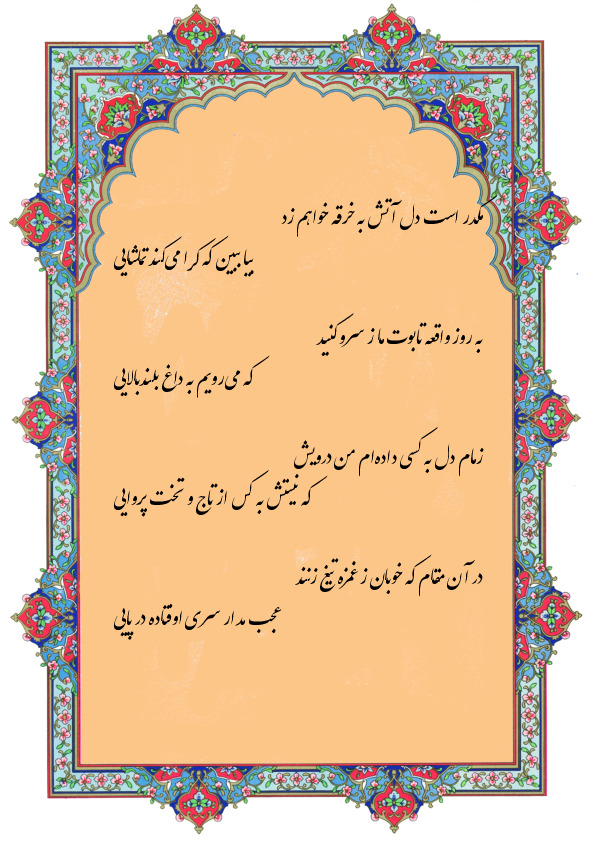 مکدر است دل آتش به خرقه خواهم زد
بیا ببین که کرا می‌کند تماشایی
به روز واقعه تابوت ما ز سرو کنید
که می‌رویم به داغ بلندبالایی
زمام دل به کسی داده‌ام من درویش
که نیستش به کس از تاج و تخت پروایی
در آن مقام که خوبان ز غمزه تیغ زنند
عجب مدار سری اوفتاده در پایی